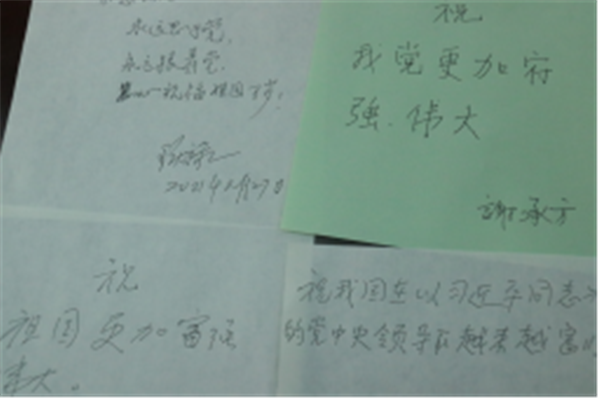 永远忠于党,
永远跟着党.
祝福祖国万岁!
2021年6月27日
祝
我党更加富
强.伟大
謝承方
祝
祖国更加富强
祝我国在以习近平同志为
的党中央领导下越来越富